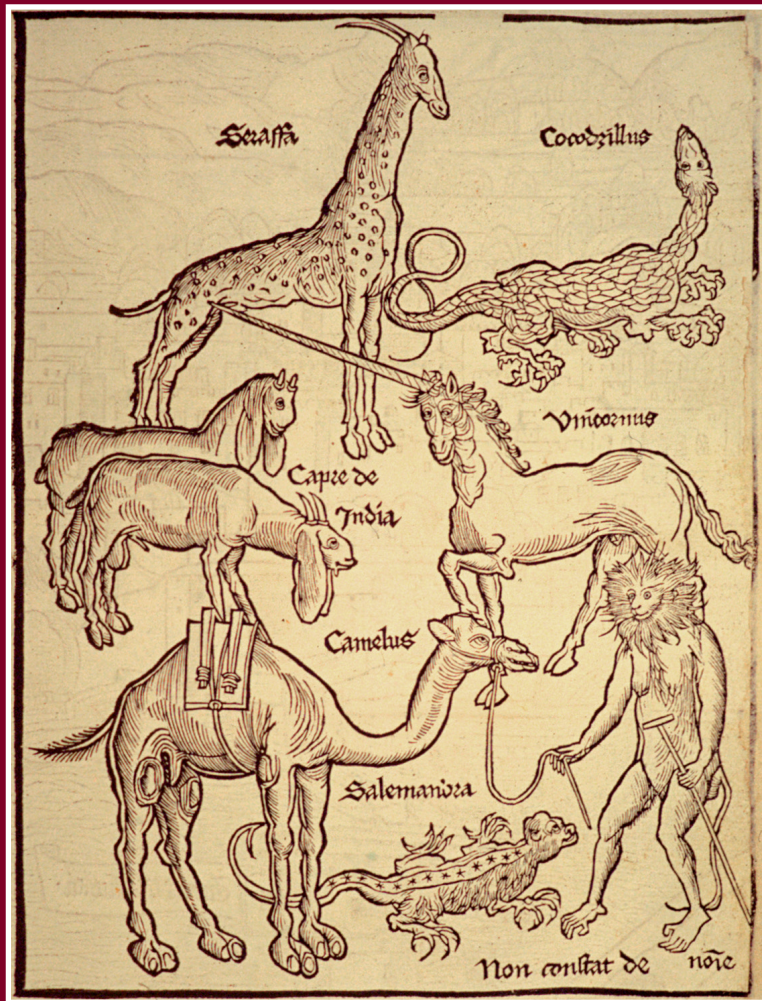 Seraffa
Cocodrillus
Vnicornus
Capre de
India
Camelus
Salemandra
Non constat de noie